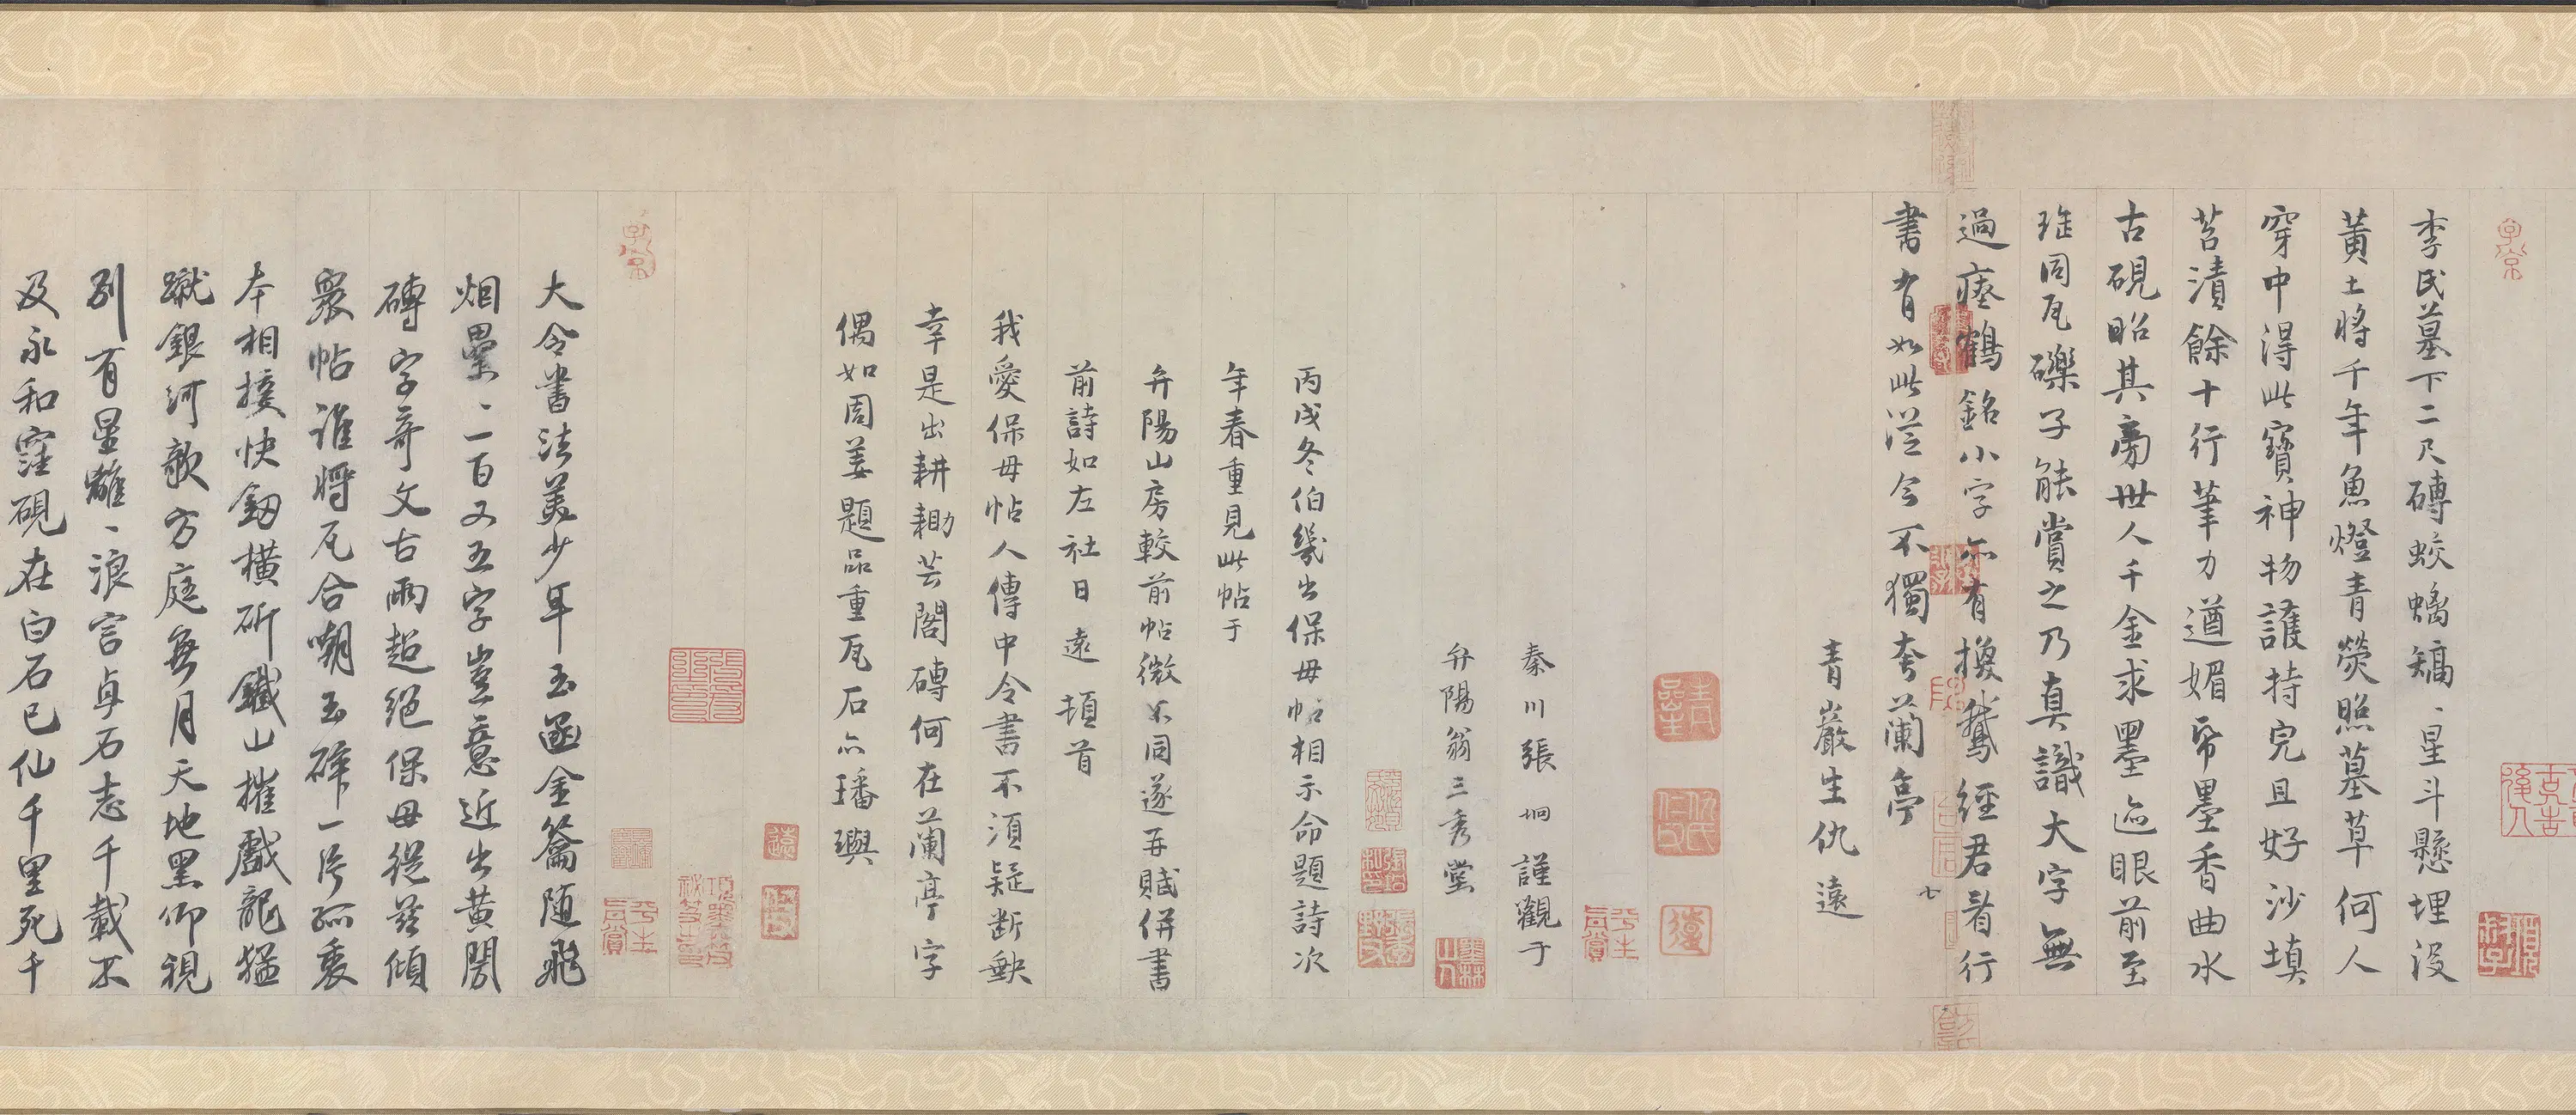 李氏墓下二尺磚蛟螭矯〻星斗懸埋沒
黃土將千年魚燈青熒照墓草何人
穿中得此寶神物護持完且好沙填
苔漬餘十行筆力遒媚帋墨香曲水
古硯昭其旁世人千金求墨迹眼前至
珤同瓦礫子能賞之乃真識大字無
過瘞鶴銘小字亦有換鵝經君看行
書有如此從今不獨夸蘭亭
青巖生仇遠
七
秦川張坰謹觀于
弁陽翁三秀堂
丙戌冬伯幾出保母帖相示命題詩次
年春重見此帖于
弁陽山房較前帖微不同遂再賦併書
前詩如左社日遠頓首
我愛保母帖人傳中令書不須疑斷缺
幸是出耕耡芸閣磚何在蘭亭字
偶如周姜題品重瓦石亦璠璵
大令書法美少年玉函金籥随飛
烟纍〻一百又五字豈意近出黃閍
磚字奇文古兩超絕保母從茲傾
衆帖誰將瓦合嘲玉碎一片孤裏
本相接快劔橫斫鐵山摧戲龍猛
蹴銀河欹方庭無月天地黑仰視
別有星離〻浪言貞石志千載不
及永和窪硯在白石已仙千里死千